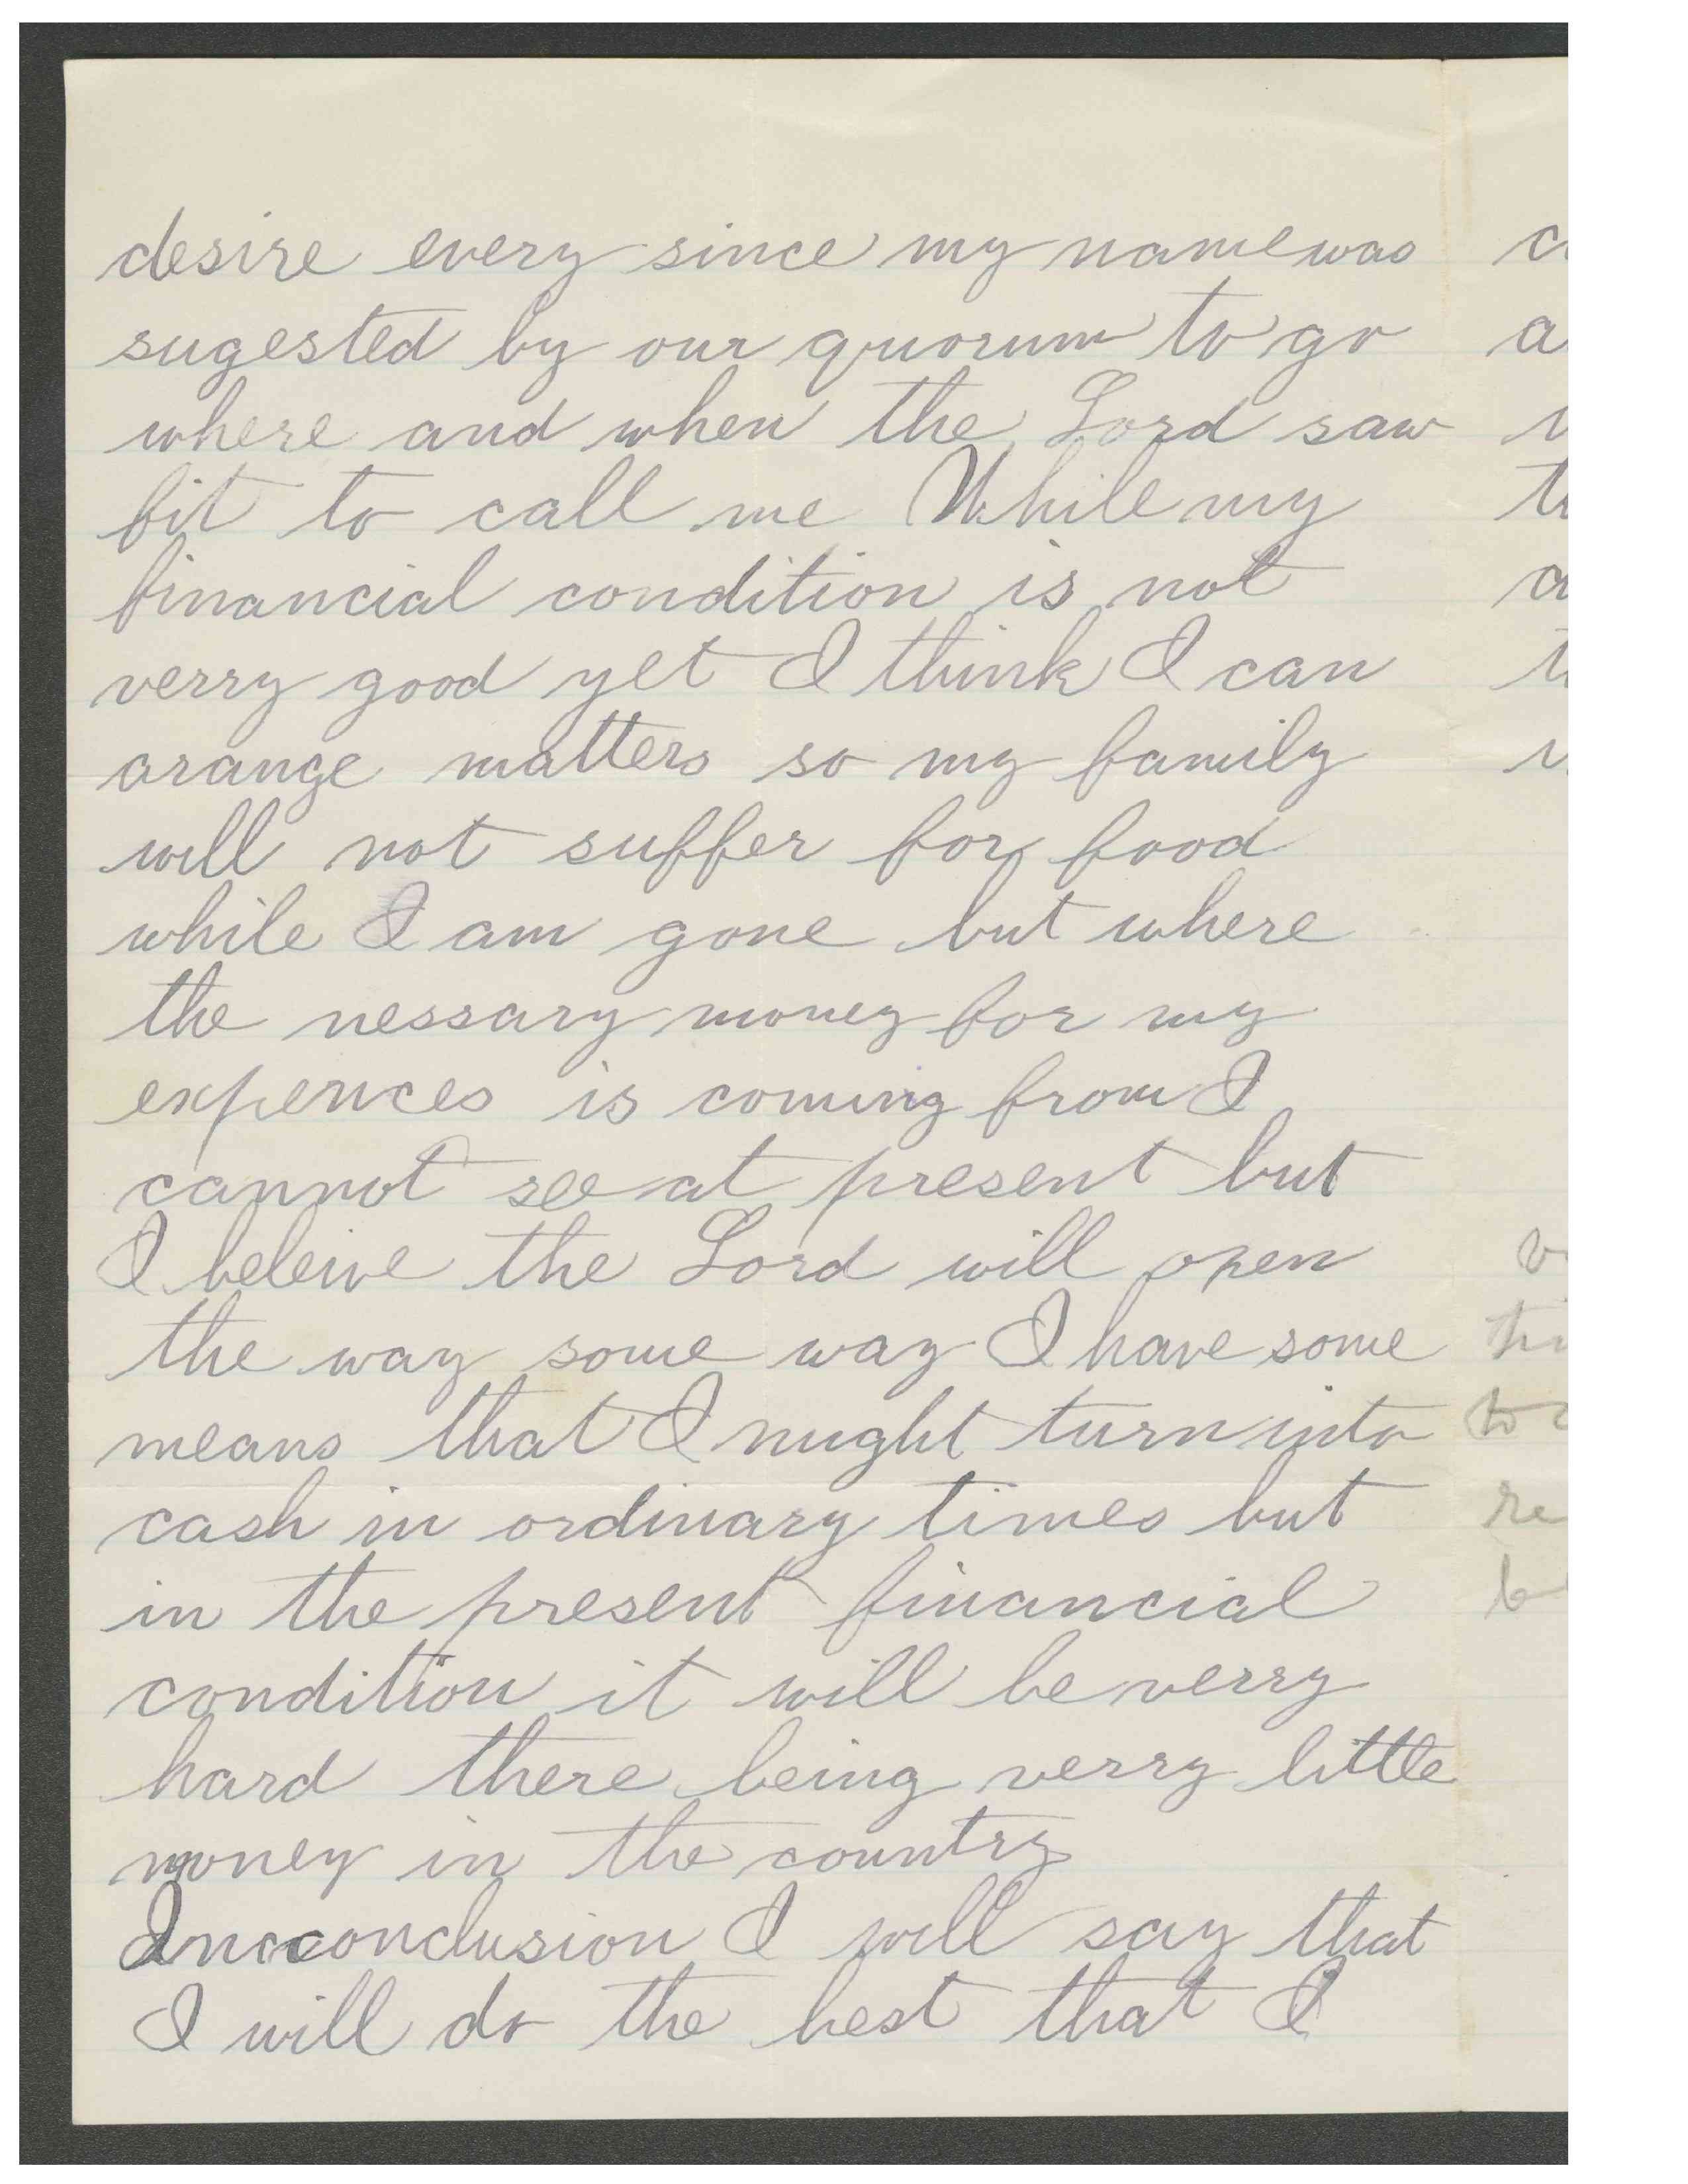 desire every since my name was
sugested by our quorum to go
where and when the Lord saw
fit to call me While my
financial condition is not
verry good yet I think I can
arange matters so my family
will not suffer for food
while I am gone but where
the nessary money for my
expences is coming from I
cannot see at present but
I beleive the Lord will open
the way some way I have some
means that I might turn into
cash in ordinary times but
in the present financial
condition it will be verry
hard there being verry little
money in the country
In conclusion I will say that
I will do the best that I